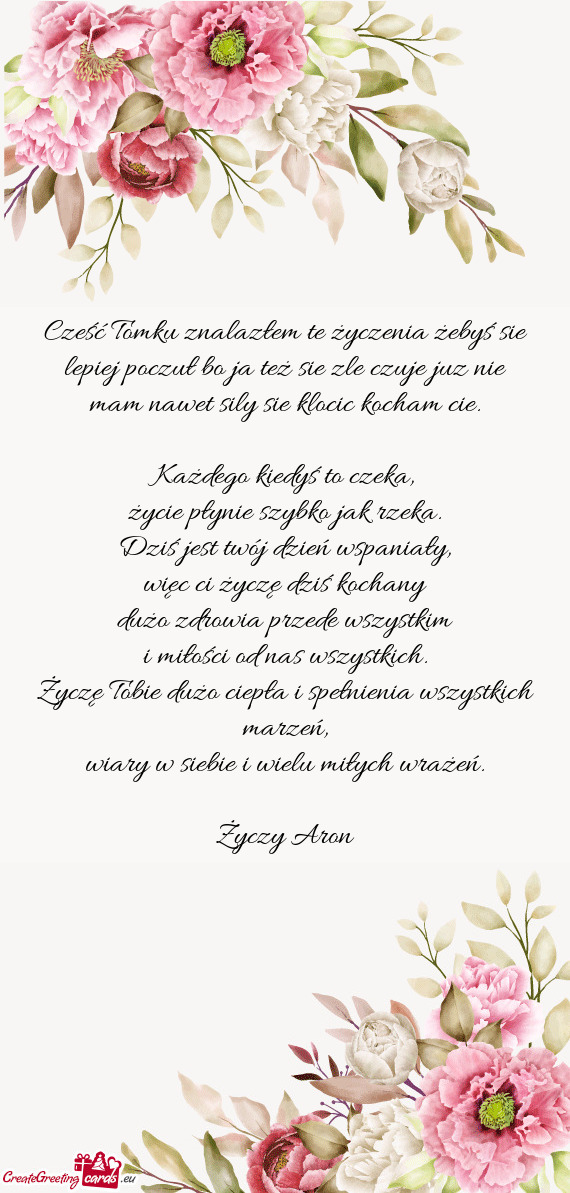 Cześć Tomku znalazłem te życzenia żebyś sie
lepiej poczuł bo ja też sie zle czuje juz nie
mam nawet sily sie klocic kocham cie.
Każdego kiedyś to czeka,
życie płynie szybko jak rzeka.
Dziś jest twój dzień wspaniały,
więc ci życzę dziś kochany
dużo zdrowia przede wszystkim
i miłości od nas wszystkich.
Życzę Tobie dużo ciepła i spełnienia wszystkich
marzeń,
wiary w siebie i wielu miłych wrażeń.
Życzy Aron
CreateGreeting cards .eu